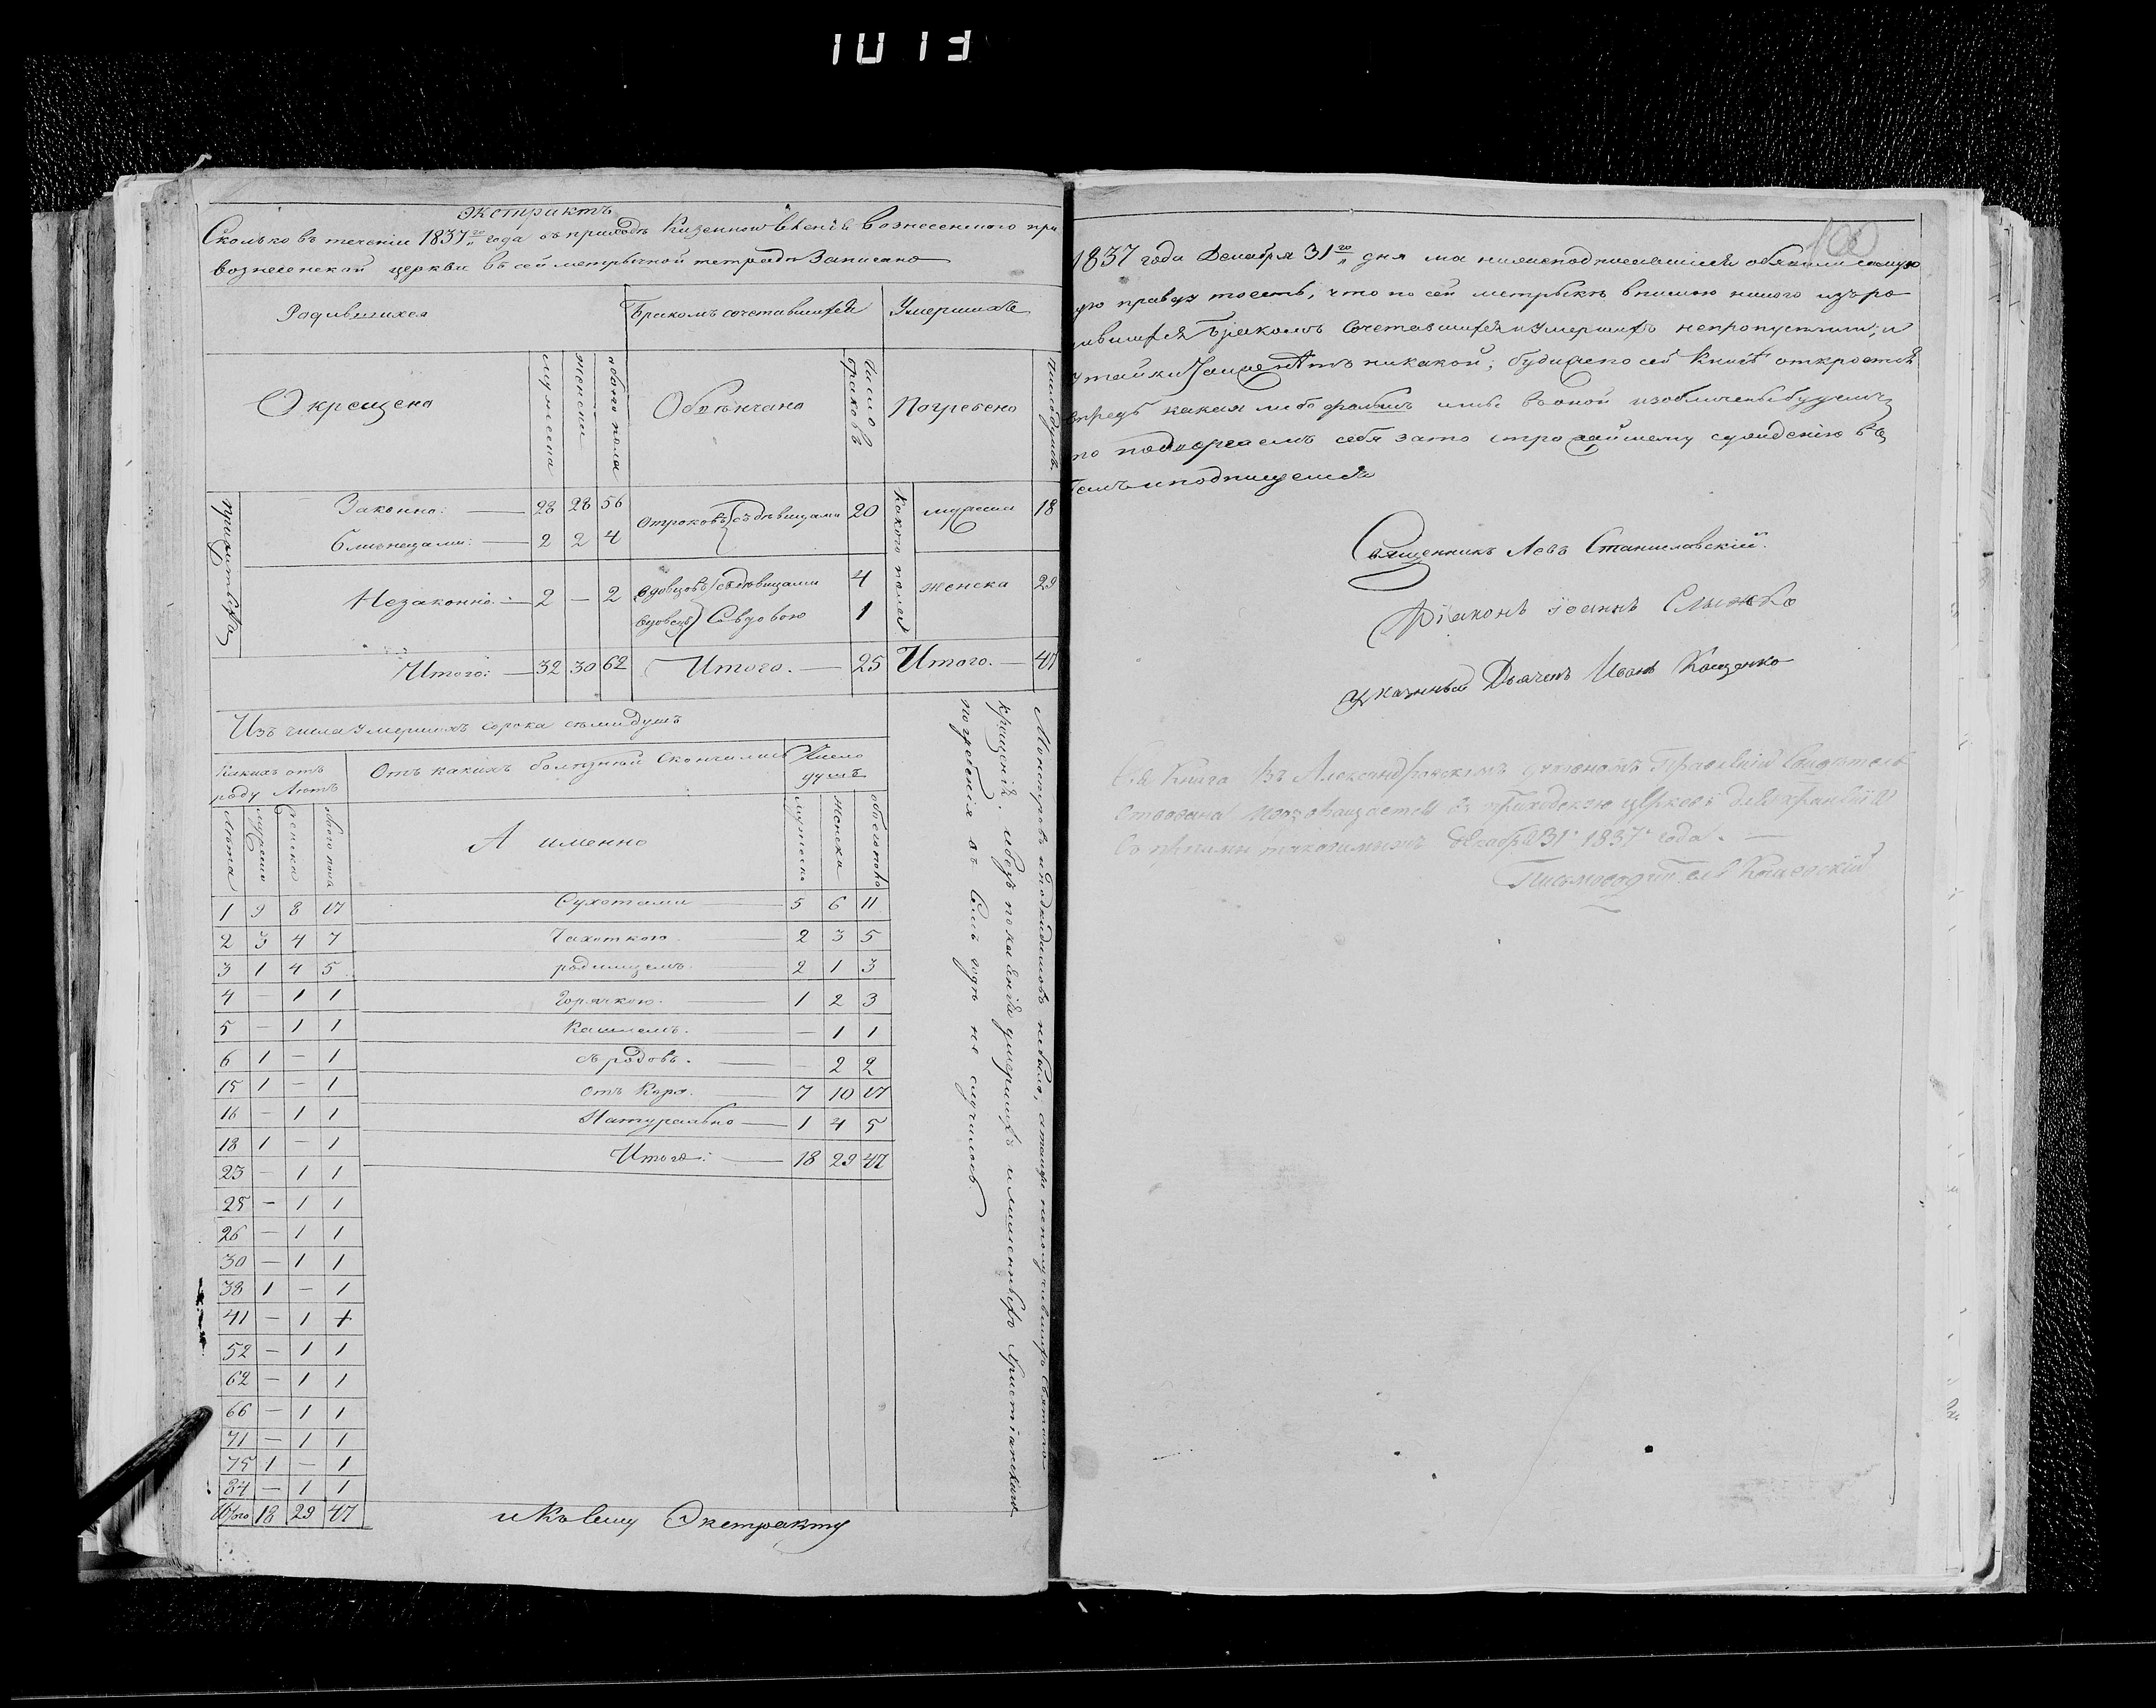 1013
Экстрактъ
Сколько въ течении 1837го года въ приходъ Вознесенского при
вознесенской церкви въ сей метрычной тетради Записано
Родившихся
Бракомъ сочетавшихся
Умершихъ
Окрещено
мужеска
женски
обоего пола
Обвѣнчано
Число браковъ
Погребено
Число душъ
Законно: — 28 28 56
близнецами: — 2 2 4
Незаконно: — 2 — 2
Итого: — 32 30 62
Отроковъ съ дѣвицами 20
вдовцовъ съ дѣвицами 4
вдовецъ Съ вдовою 1
Итого. — 25
какого пола
мужеска 18
женска 29
Итого. — 47
Изъ числа Умершихъ сорока семи душъ
Какихъ отъ роду Лѣтъ
Лѣта
мужеско
женска
обоего пола
1 9 8 17
2 3 4 7
3 1 4 5
4 — 1 1
5 — 1 1
6 1 — 1
15 1 — 1
16 — 1 1
18 1 — 1
23 — 1 1
25 — 1 1
26 — 1 1
30 — 1 1
38 1 — 1
41 — 1 1
52 — 1 1
62 — 1 1
66 — 1 1
71 — 1 1
75 1 — 1
84 — 1 1
Итого 18 29 47
Отъ какихъ болѣзней Скончались
Число душъ
А именно
мужеска
женски
обоего пола
Сухотами — 5 6 11
Чахоткою — 2 3 5
родимцемъ — 2 1 3
Горячкою. — 1 2 3
Кашлемъ. — — 1 1
съ родовъ. — — 2 2
отъ Кора. — 7 10 17
Натурально — 1 4 5
Итого: — 18 29 47
Монстровъ и подкидишовъ небыло, неполучившихъ Святого
крещенія. безъ покаянія умершихъ и лишенныхъ христіянскаго
погребенія въ семъ годѣ не случилось.
и Къ Сему Экстракту
100
1837 года Декабря 31го дня мы нижеподписавшіеся обявили самую
правду тоесть, что по сей метрыкѣ никого изъ ро
дившихся Бракомъ Сочетавшихся и Умершихъ непропустили; и
утайки нѣтъ никакой; буди же по сей Книгѣ откроется
впредъ какая либо фальшъ или въ оной изобличены будемъ
то подвергаемъ себя зато строжайшему сужденію въ
темъ и подпищемся
Священникъ Левъ Станиславскій.
Діаконъ Іоаннъ Слыжко
Указный Дьячекъ Иванъ Кащенко
Сія Книга Въ Александровскомъ духовномъ Правленіи Свидѣтель
ствована возвращается въ приходскую церковь для храненія
Декабря 31 1837 года. —
Письмоводитель